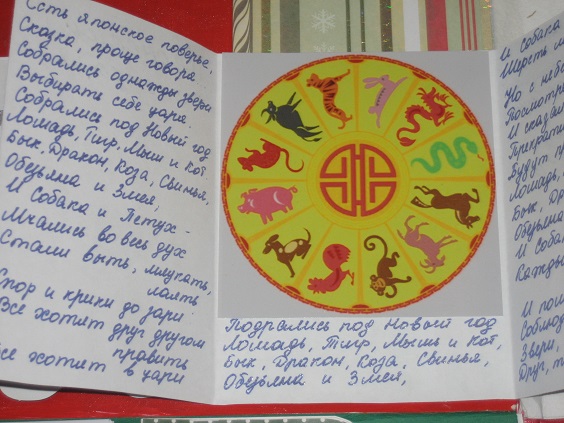 Есть японское поверье,
Сказка, проще говоря
Собрались однажды звери
Выбирать себе царя.
Собрались под Новый год
Лошадь, Тигр, Мышь и Кот,
Бык, Дракон, Коза, Свинья,
Обезьяна и Змея,
И Собака и Петух -
Мчались во весь дух
Стали выть, мяукать,
лаять
Спор и крики до зари
Все хотят друг другом
править
Все хотят в цари
Подрались под Новый год
Лошадь, Тигр, Мышь и Кот,
Бык, Дракон, Коза, Свинья,
Обезьяна и Змея,
И Собака
Шерсть
Но с неб
Посмотре
И сказал
Прекрати
Будут
Лошадь,
Бык, Др
Обезьяна
И Соба
Кажды
И пош
Соблюд
Звери,
Друг,